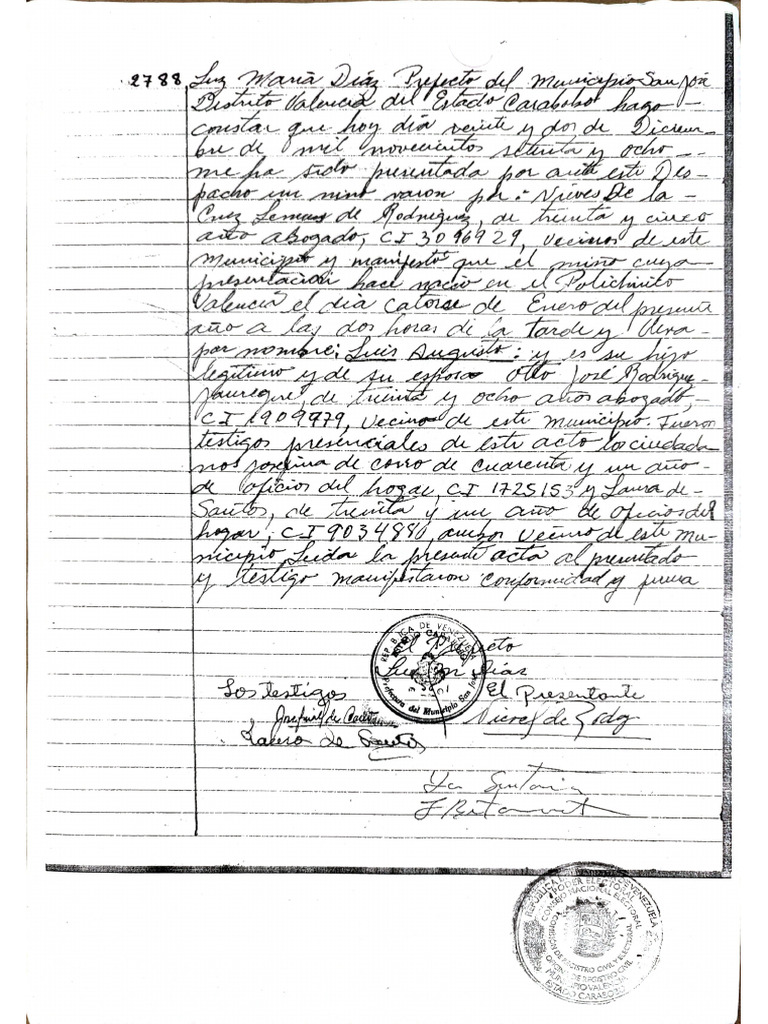 2788 Luz Maria Diaz Prefecto del Municipio San José
Distrito Valencia del Estado Carabobo hago
constar que hoy día veinte y dos de Diciem-
bre de mil novecientos setenta y ocho
me ha sido presentada por ante este Des-
pacho un niño varon por: Nieves De la
Cruz Lemus de Rodriguez, de treinta y cinco
año abogado, CI 3096929, vecinos de este
Municipio y manifestó que el niño cuya
presentación hace nacio en el Policlinico
Valencia el día catorse de Enero del presente
año a las dos horas de la tarde y lleva
por nombre: Luis Augusto: y es su hijo
legitimo y de su esposo Otto José Rodriguez
Jauregui, de treinta y ocho años abogado,
CI 1909979, vecino de este municipio. Fueron
testigos presenciales de este acto los ciudada
nos de de cuarenta y un año
de oficios del hogar, CI 1725153 y Laura de
Santos, de treinta y un año de oficios del
hogar, CI 9034880, vecino de este mu-
nicipio Leida la presente acta al presentado
y testigo manifestaron conformidad y firma
El Prefecto
Luz M Dias
REPUBLICA DE VENEZUELA
ESTADO CARABOBO
Prefectura del Municipio San José
Los testigos
El Presentante
Josefina de
Nieves de Rodg
Laura de Santos
REPÚBLICA DE VENEZUELA
PODER ELECTORAL
CONSEJO NACIONAL ELECTORAL
COMISIÓN DE REGISTRO CIVIL Y ELECTORAL
OFICINA DE REGISTRO CIVIL
MUNICIPIO VALENCIA
ESTADO CARABOBO